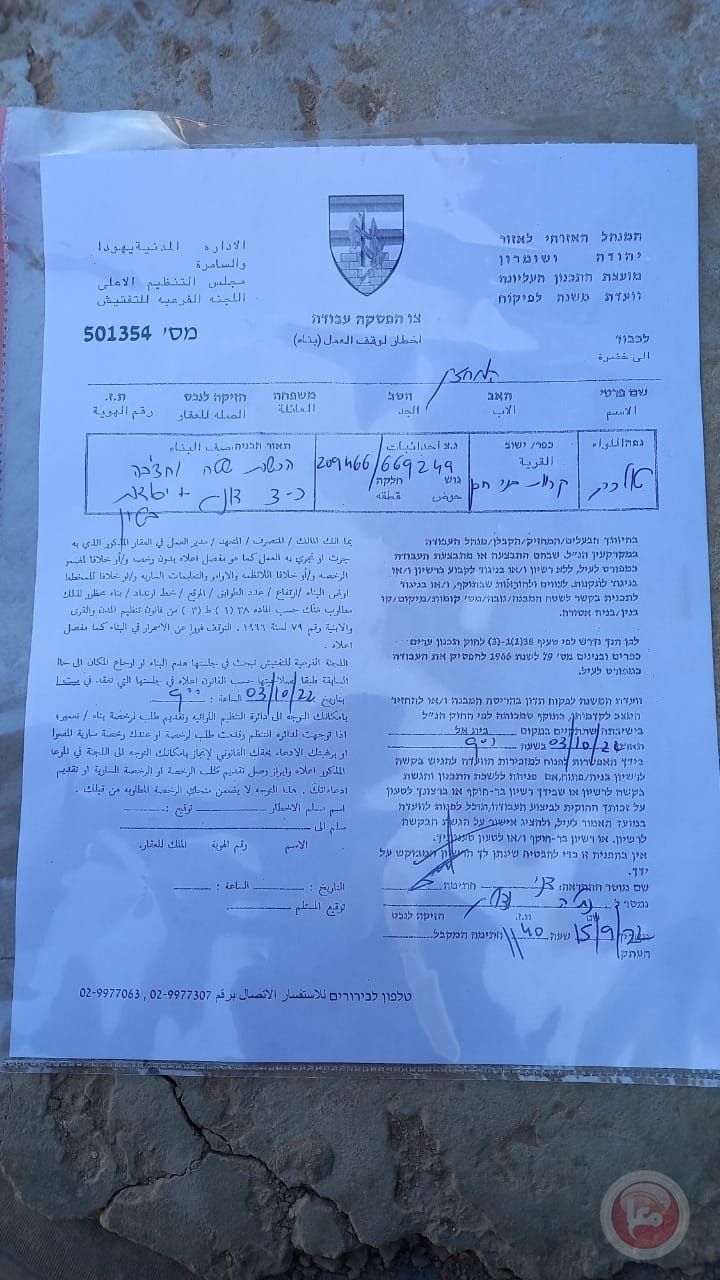 המנהל האזרחי לאזור
יהודה ושומרון
מועצת התכנון העליונה
וועדת משנה לפיקוח
الاداره المدنية يهودا
والسامرة
مجلس التنظيم الاعلى
اللجنه الفرعيه للتفتيش
צו הפסקה עבודה
اخطار لوقف العمل (بناء)
מס' 501354
לכבוד
الى حضرة
המחזיק
שם פרטי האב הסב משפחה חזיקה לנכס ת.ז.
الاسم الاب الجد العائلة الصله للعقار رقم الهوية
נפה/הלואה כפר/ ישוב נ.צ احداثيات תאור הבניה صف البناء
القرية גוש חלקה
حوض قطعه
טול כרם
209466/669249
הכשרת שטח וחציבה
כ-3 דונם +
בהיותך הבעלים/המחזיק/הקבלן/מנהל העבודה
במקרקעין הנ"ל, שבהם התבצעה או מתבצעת העבודה
כמפורט לעיל, ללא רשיון ו/או בניגוד לקבוע ברשיון ו/או
בניגוד לתקנות, לצווים ולהוראות שבתוקף, ו/או בניגוד
לתכנית בקשר לשטח המבנה/גובה/מס' קומות/מיקום/קו
בנין/בניה אסורה.
לכן הנך נדרש לפי סעיף 38(1)(-3) לחוק תכנון ערים
כפרים ובנינים מס' 79 לשנת 1966 להפסיק את העבודה
כמפורט לעיל.
וועדת המשנה לפקוח תדון בהריסת המבנה ו/או להחזיר
המצב לקדמותו, בתוקף סמכותה לפי החוק הנ"ל
בישיבתה שתתקיים במקום בית אל
03/10/22 בשעה 9
בידך האפשרות לפנות למזכירות הוועדה להגיש בקשה
לרשיון בניה/פתוח, אם פניתה ללשכת התכנון והגשת
בקשה לרשיון או שבידך רשיון בר-תוקף או ברצונך לטעון
על זכותך החוקית לביצוע העבודה, תוכל לפנות לוועדה
במועד האמור לעיל, ולהציג אישור על הגשת הבקשה
לרשיון, או רשיון בר-תוקף ו/או לטעון טענותיך.
אין בהפניה זו כדי להבטיח שינתן לך הרשיון המבוקש על
ידך.
שם מוסר ההתראה: חתימה
נמסר ל
ת.ז. חזיקה לנכס
15/9/22 שעה 11:40 חתימה המקבל
העתק
بما انك المالك / المتصرف / المتعهد / مدير العمل في العقار المذكور الذي به
جرت او تجري به العمل كما هو مفصل اعلاه بدون رخصه و/او خلافا لمضمون
الرخصه و/او خلافا للانظمه والاوامر والتعليمات الساريه و/او خلافا للمخطط
ارض البناء /ارتفاع / عدد الطوابق / الموقع / خط ارتداد / بناء محظور لذلك
مطلوب منك حسب الماده ٣٨ (١) ط (٣) من قانون تنظيم المدن والقرى
والابنية رقم ٧٩ لسنة ١٩٦٦. التوقف فورا عن الاسمرار في البناء كما مفصل
اعلاه
اللجنة الفرعية للتفتيش تبحث في جلستها هدم البناء او ارجاع المكان الى حاله
السابقة طبقا لصلاحيتها حسب القانون اعلاه في جلستها التي تنعقد في
بتاريخ 03/10/22 الساعة : 9
بامكانك التوجه الى دائرة التنظيم اللوائيه وتقديم طلب لرخصة بناء / تعمير؛
اذا توجهت لدائرة التنظيم وقدمت طلب لرخصة او عندك رخصة سارية المفعول
او برغبتك الادعاء بحقك القانوني لانجاز بامكانك التوجه الى اللجنة في الموعد
المذكور اعلاه وابراز وصل تقديم طلب الرخصة او الرخصة السارية او تقديم
ادعاءاتك. هذا التوجه لا يضمن منحك الرخصة المطلوبه من قبلك.
اسم مسلم الاخطار توقيع :
سلم الى
الاسم رقم الهوية الملك للعقار.
التاريخ : الساعة :
توقيع المستلم :
טלפון לבירורים للاستفسار الاتصال برقم 02-9977307 , 02-9977063
معا